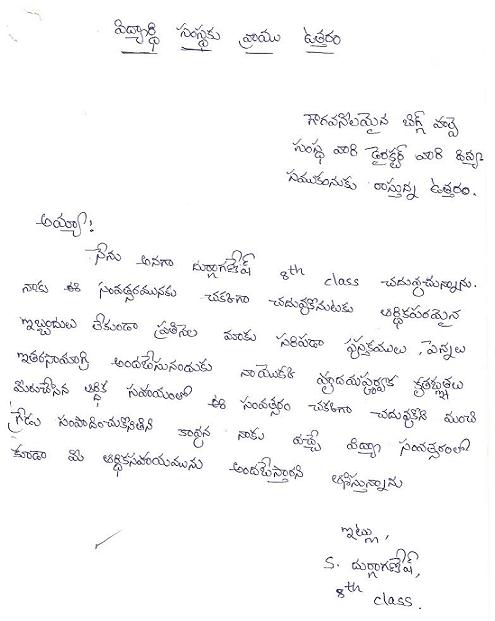 విద్యార్థి సంస్థకు వ్రాయు ఉత్తరం
గౌరవనీలమైన బిగ్గ్ హెల్ప్
సంస్థ వారి డైరక్టర్ వారి దివ్య
సముకంనుకు రాస్తున్న ఉత్తరం.
అయ్యా!
నేను అనగా దుర్గాగణేష్ 8th class చదువుచున్నాను.
నాకు ఈ సంవత్సరమునకు చక్కగా చదువుకొనుటకు ఆర్థికపరమైన
ఇబ్బందులు లేకుండా ప్రతినెల మాకు సరిపడా పుస్తకములు, పెన్నులు
ఇతరసామాగ్రి అందజేసునందుకు నాయొక్క హృదయపూర్వక కృతజ్ఞతలు
మీరుచేసిన ఆర్థిక సహాయంతో ఈ సంవత్సరం చక్కగా చదువుకొని మంచి
గ్రేడు సంపాదించుకొనితిని కావున నాకు వచ్చే విద్యా సంవత్సరంలో
కూడా మీ ఆర్థికసహాయమును అందజేస్తారని ఆశిస్తున్నాను
ఇట్లు,
S. దుర్గాగణేష్,
8th class.